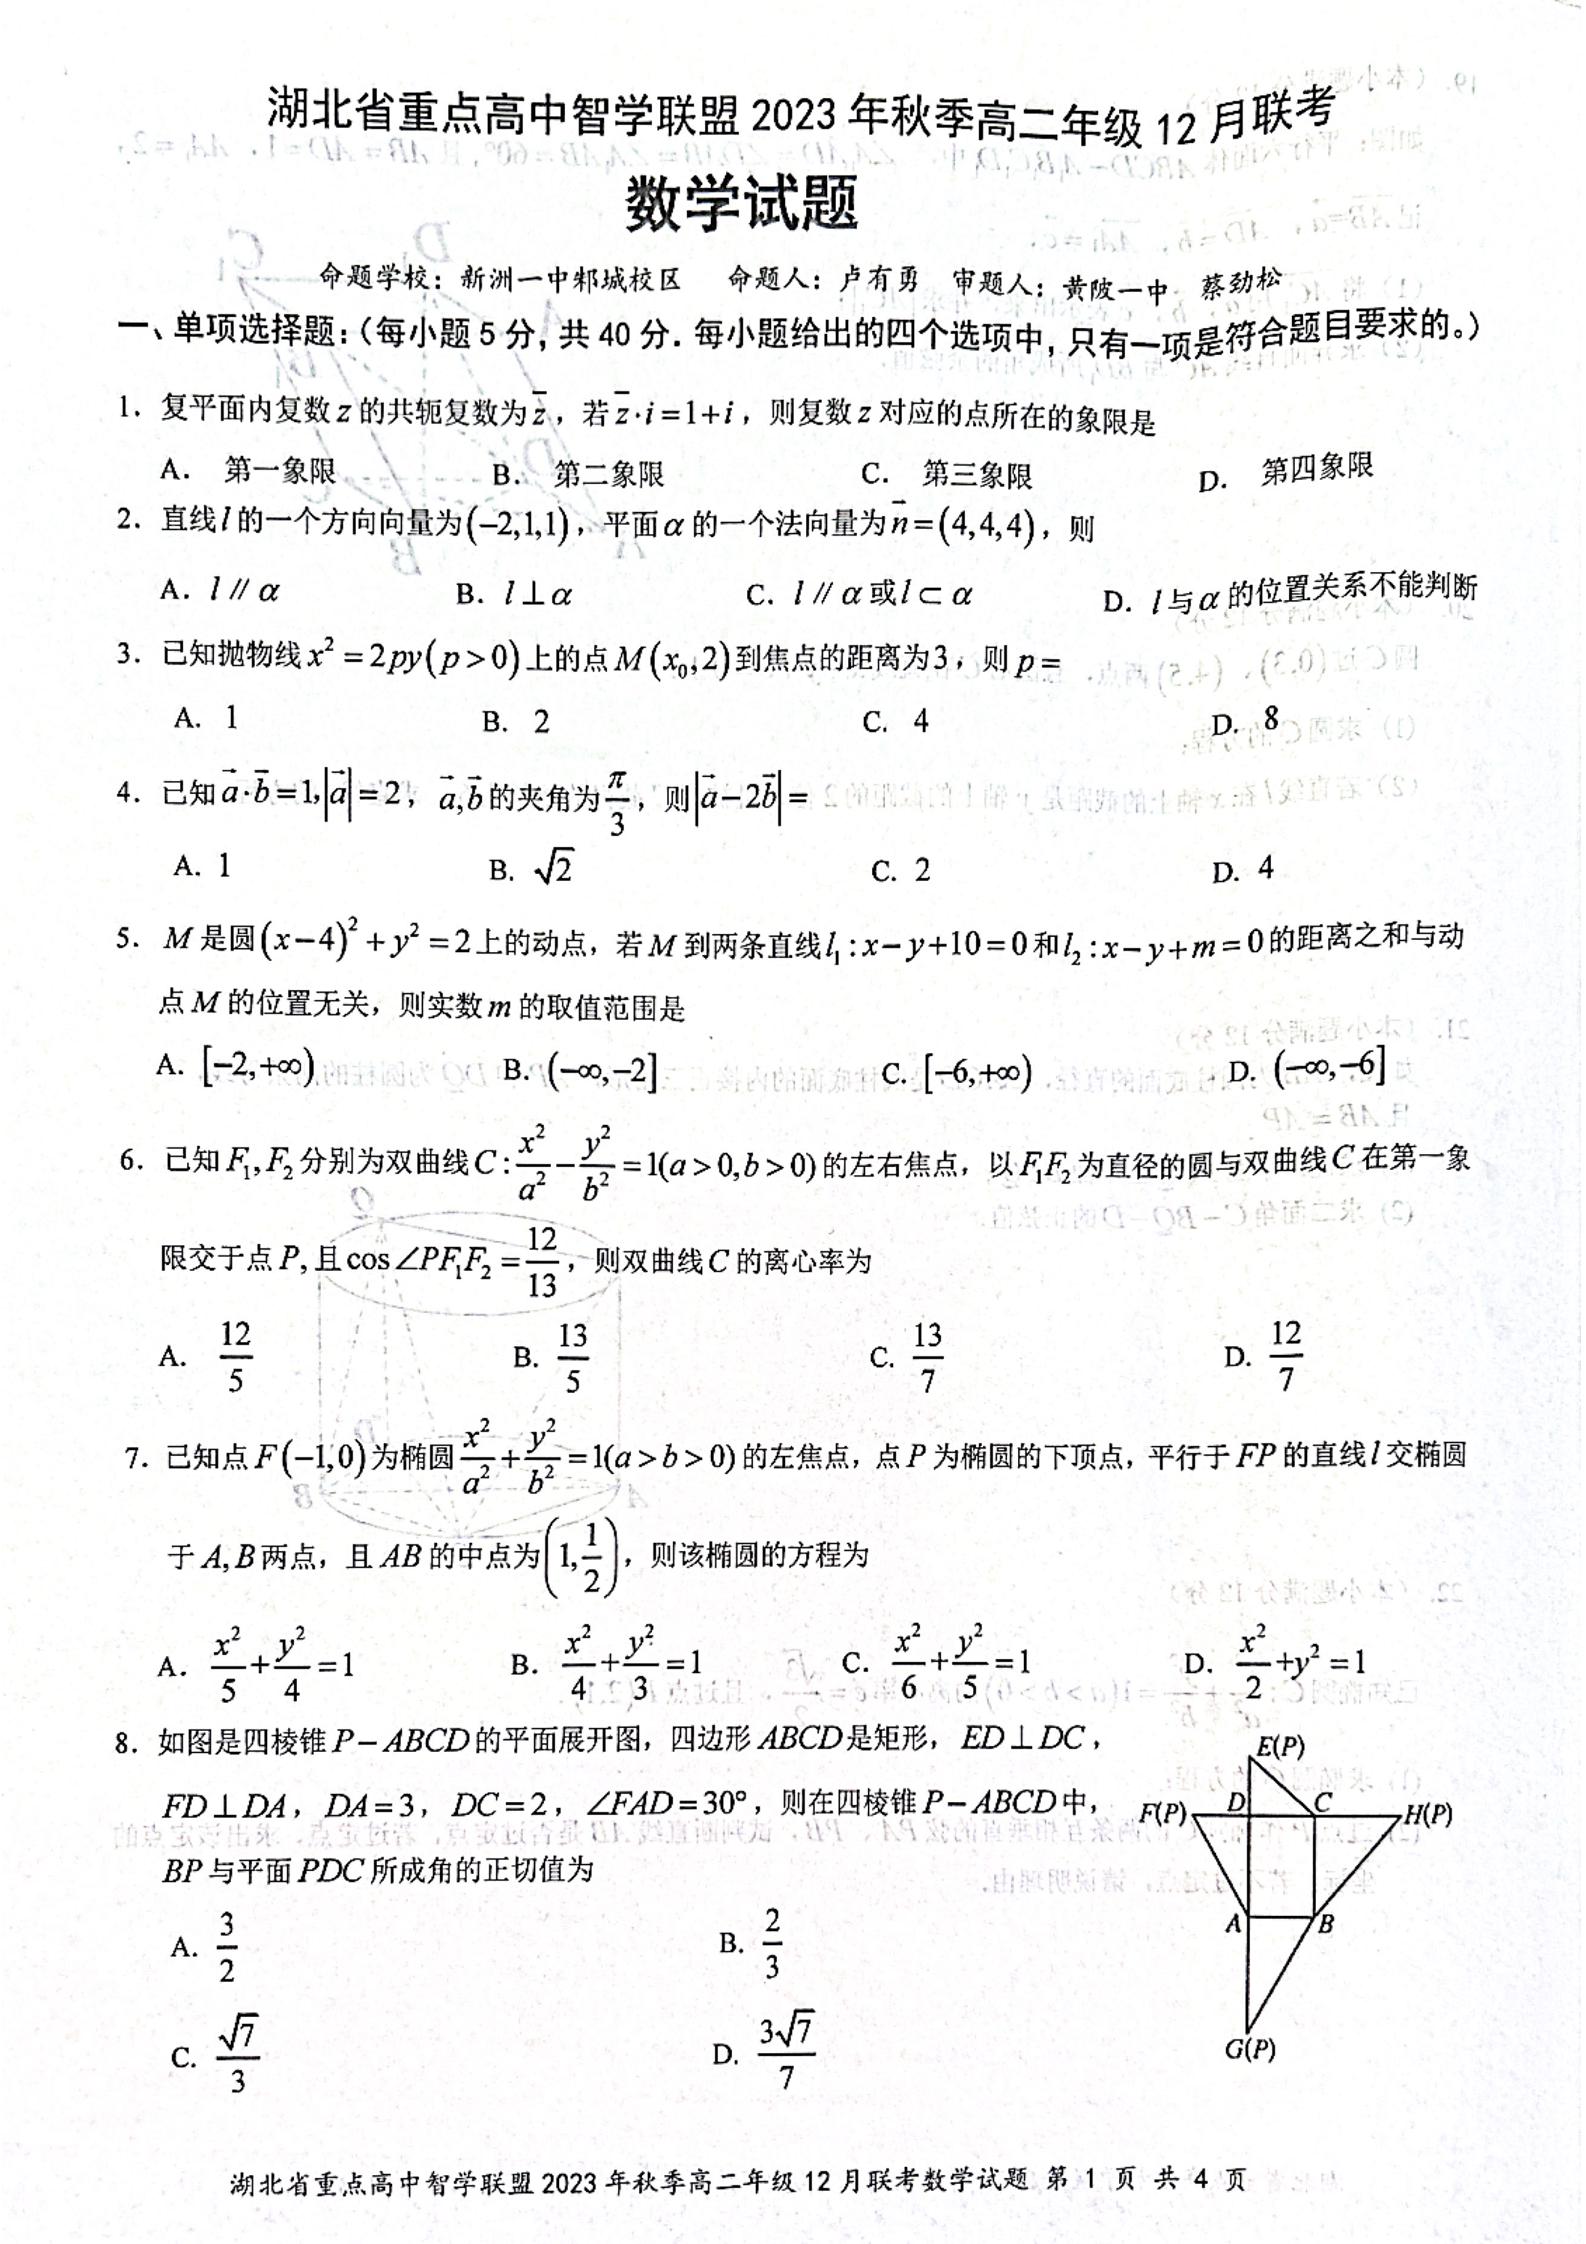 湖北省重点高中智学联盟 2023 年秋季高二年级 12 月联考
数学试题
命题学校：新洲一中邾城校区 命题人：卢有勇 审题人：黄陂一中 蔡劲松
一、单项选择题：（每小题 5 分，共 40 分．每小题给出的四个选项中，只有一项是符合题目要求的。）
1. 复平面内复数 z 的共轭复数为 z̄，若 z̄·i=1+i，则复数 z 对应的点所在的象限是
A. 第一象限 B. 第二象限 C. 第三象限 D. 第四象限
2. 直线 l 的一个方向向量为(−2,1,1)，平面 α 的一个法向量为 n⃗=(4,4,4)，则
A. l∥α B. l⊥α C. l∥α 或 l⊂α D. l 与 α 的位置关系不能判断
3. 已知抛物线 x²=2py(p>0)上的点 M(x₀,2)到焦点的距离为3，则 p=
A. 1 B. 2 C. 4 D. 8
4. 已知 a⃗·b⃗=1,|a⃗|=2，a⃗,b⃗ 的夹角为 π/3，则|a⃗−2b⃗|=
A. 1 B. √2 C. 2 D. 4
5. M 是圆(x−4)²+y²=2上的动点，若 M 到两条直线 l₁:x−y+10=0和 l₂:x−y+m=0的距离之和与动
点 M 的位置无关，则实数 m 的取值范围是
A. [−2,+∞) B. (−∞,−2] C. [−6,+∞) D. (−∞,−6]
6. 已知 F₁,F₂ 分别为双曲线 C:x²/a²−y²/b²=1(a>0,b>0)的左右焦点，以 F₁F₂ 为直径的圆与双曲线 C 在第一象
限交于点 P,且 cos∠PF₁F₂=12/13，则双曲线 C 的离心率为
A. 12/5 B. 13/5 C. 13/7 D. 12/7
7. 已知点 F(−1,0)为椭圆 x²/a²+y²/b²=1(a>b>0)的左焦点，点 P 为椭圆的下顶点，平行于 FP 的直线 l 交椭圆
于 A,B 两点，且 AB 的中点为(1,1/2)，则该椭圆的方程为
A. x²/5+y²/4=1 B. x²/4+y²/3=1 C. x²/6+y²/5=1 D. x²/2+y²=1
8. 如图是四棱锥 P−ABCD 的平面展开图，四边形 ABCD 是矩形，ED⊥DC，
FD⊥DA，DA=3，DC=2，∠FAD=30°，则在四棱锥 P−ABCD 中，
BP 与平面 PDC 所成角的正切值为
A. 3/2 B. 2/3
C. √7/3 D. 3√7/7
E(P)
F(P) D C H(P)
A B
G(P)
湖北省重点高中智学联盟 2023 年秋季高二年级 12 月联考数学试题 第 1 页 共 4 页